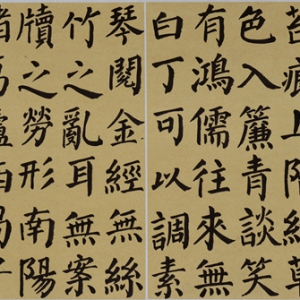 苔痕上階綠草
色入簾青談笑
有鴻儒往來無
白丁可以調素
琴閱金經無絲
竹之亂耳無案
牘之勞形南陽
諸葛廬西蜀子